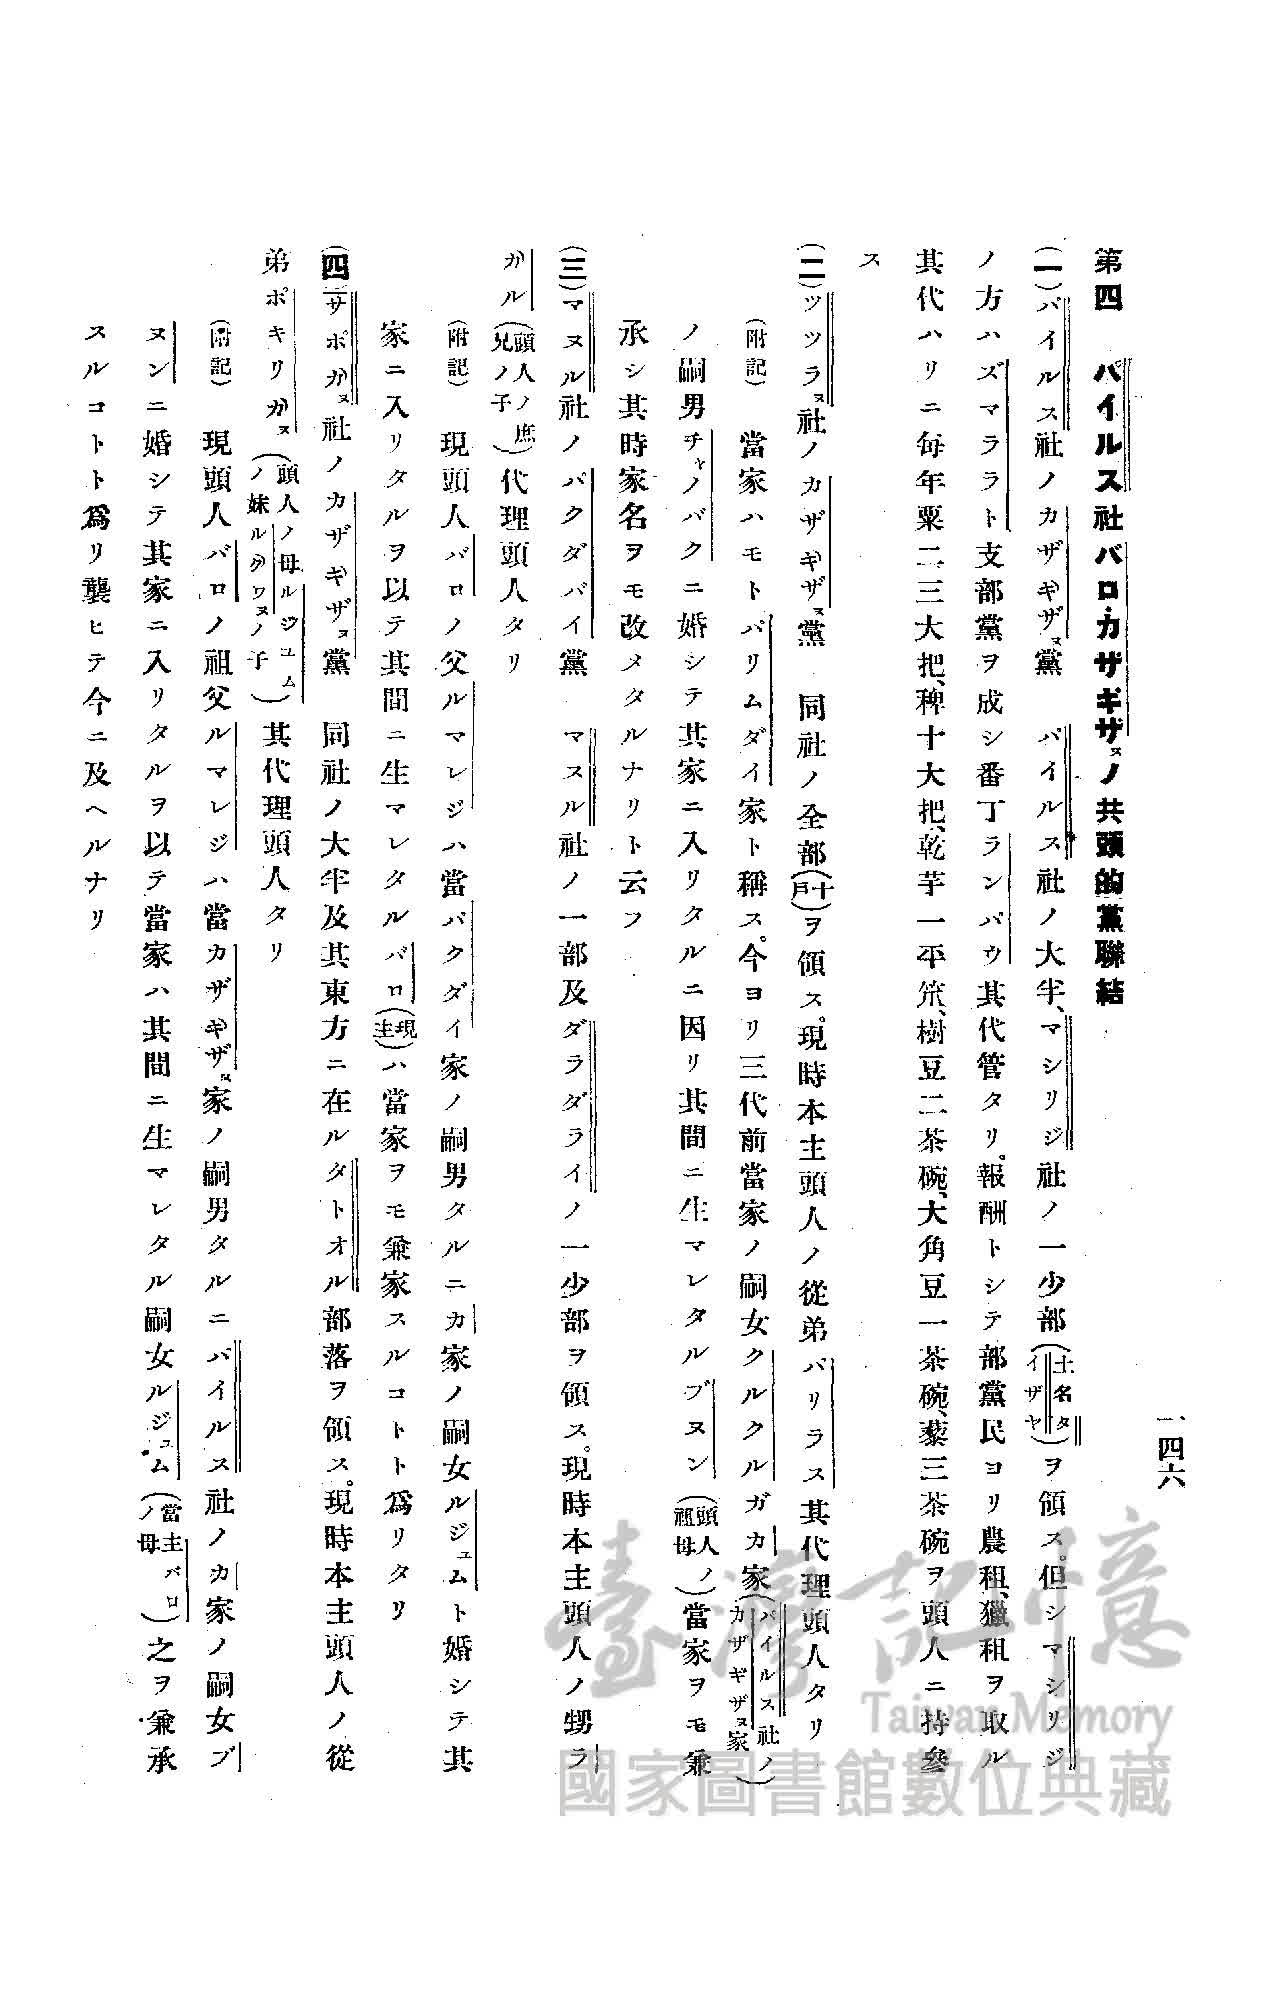 一四六
第四　パイルス社バロ、カザギザヌノ共頭的黨聯結
(一)パイルス社ノカザギザヌ黨　パイルス社ノ大半、マシリジ社ノ一少部(土名タイザヤ)ヲ領ス。但シマシリジ
ノ方ハズマララト支部黨ヲ成シ番丁ランバウ其代管タリ。報酬トシテ部黨民ヨリ農租、獵租ヲ取ル
其代ハリニ毎年粟二三大把、稗十大把、乾芋一平笊、樹豆二茶碗、大角豆一茶碗、藜三茶碗ヲ頭人ニ持參
ス
(二)ツツラヌ社ノカザギザヌ黨　同社ノ全部(十戸)ヲ領ス。現時本主頭人ノ從弟バリラス其代理頭人タリ
(附記)　當家ハモトバリムダイ家ト稱ス。今ヨリ三代前當家ノ嗣女クルクルガカ家(パイルス社ノカザギザヌ家)
ノ嗣男チャノバクニ婚シテ其家ニ入リタルニ因リ其間ニ生マレタルブヌン(頭人ノ祖母)當家ヲモ兼
承シ其時家名ヲモ改メタルナリト云フ
(三)マヌル社ノパクダバイ黨　マスル社ノ一部及ダラダライノ一少部ヲ領ス。現時本主頭人ノ甥ラ
ガル(頭人ノ庶兄ノ子)代理頭人タリ
(附記)　現頭人バロノ父ルマレジハ當パクダイ家ノ嗣男タルニカ家ノ嗣女ルジュムト婚シテ其
家ニ入リタルヲ以テ其間ニ生マレタルバロ(現主)ハ當家ヲモ兼家スルコトト爲リタリ
(四)サポガヌ社ノカザギザヌ黨　同社ノ大半及其東方ニ在ルタトオル部落ヲ領ス。現時本主頭人ノ從
弟ポキリガヌ(頭人ノ母ルジュムノ妹ルガワヌノ子)其代理頭人タリ
(附記)　現頭人バロノ祖父ルマレジハ當カザギザヌ家ノ嗣男タルニパイルス社ノカ家ノ嗣女ブ
ヌンニ婚シテ其家ニ入リタルヲ以テ當家ハ其間ニ生マレタル嗣女ルジュム(當主バロノ母)之ヲ兼承
スルコトト爲リ襲ヒテ今ニ及ヘルナリ
臺灣記憶
Taiwan Memory
國家圖書館數位典藏